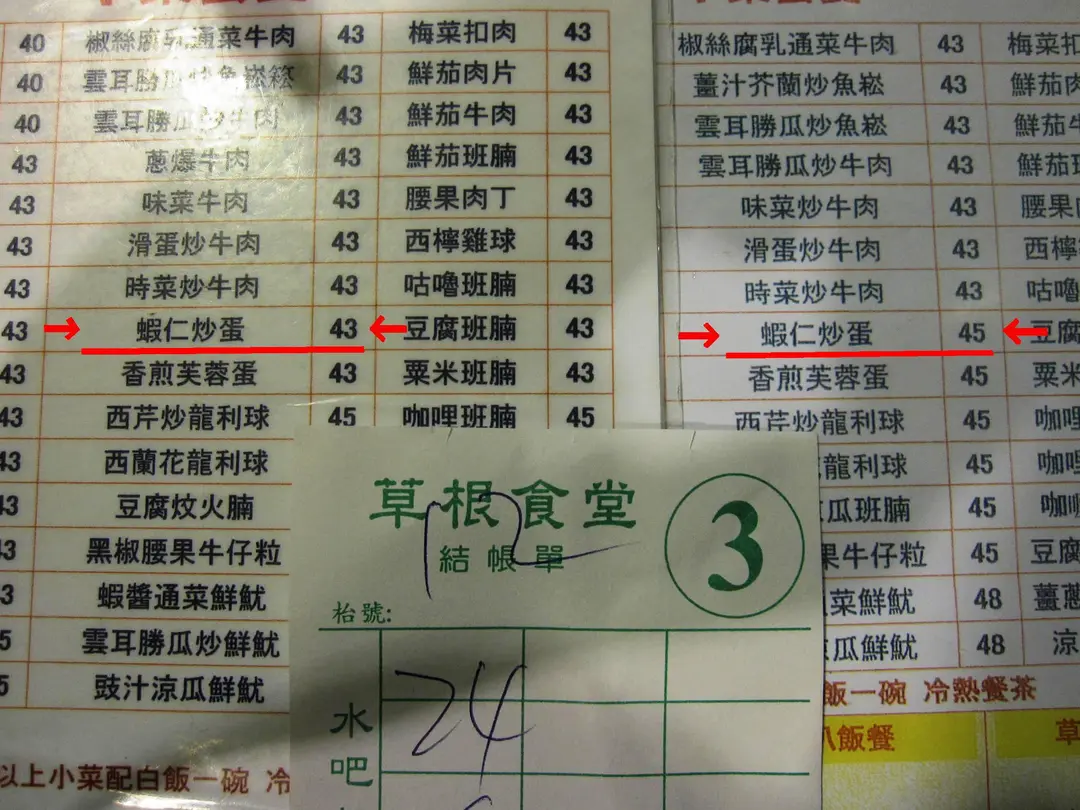 40 椒絲腐乳通菜牛肉 43 梅菜扣肉 43
40 雲耳勝瓜炒魚崧 43 鮮茄肉片 43
40 雲耳勝瓜炒牛肉 43 鮮茄牛肉 43
43 蔥爆牛肉 43 鮮茄班腩 43
43 味菜牛肉 43 腰果肉丁 43
43 滑蛋炒牛肉 43 西檸雞球 43
43 時菜炒牛肉 43 咕嚕班腩 43
43 蝦仁炒蛋 43 豆腐班腩 43
43 香煎芙蓉蛋 43 粟米班腩 43
43 西芹炒龍利球 45 咖哩班腩 45
43 西蘭花龍利球
43 豆腐炆火腩
43 黑椒腰果牛仔粒
3 蝦醬通菜鮮魷
5 雲耳勝瓜炒鮮魷
5 豉汁涼瓜鮮魷
以上小菜配白飯一碗 冷
椒絲腐乳通菜牛肉 43 梅菜扣
薑汁芥蘭炒魚崧 43 鮮茄肉
雲耳勝瓜炒魚崧 43 鮮茄牛
雲耳勝瓜炒牛肉 43 鮮茄班
味菜牛肉 43 腰果肉
滑蛋炒牛肉 43 西檸
時菜炒牛肉 43 咕嚕
蝦仁炒蛋 45 豆腐
香煎芙蓉蛋 45 粟米
西芹炒龍利球 45 咖哩
龍利球 45 咖哩
瓜班腩 45 咖
果牛仔粒 45 豆腐
菜鮮魷 48 薑蔥
瓜鮮魷 48 涼
飯一碗 冷熱餐茶
飯餐 草
草根食堂
3
12
結帳單
枱號:
24
水
吧